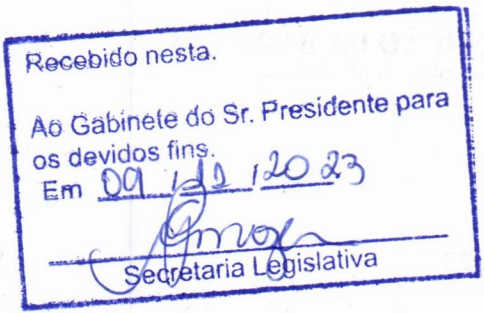 Recebido nesta.
Ao Gabinete do Sr. Presidente para
os devidos fins.
Em 09 / / 20 23
Secretaria Legislativa